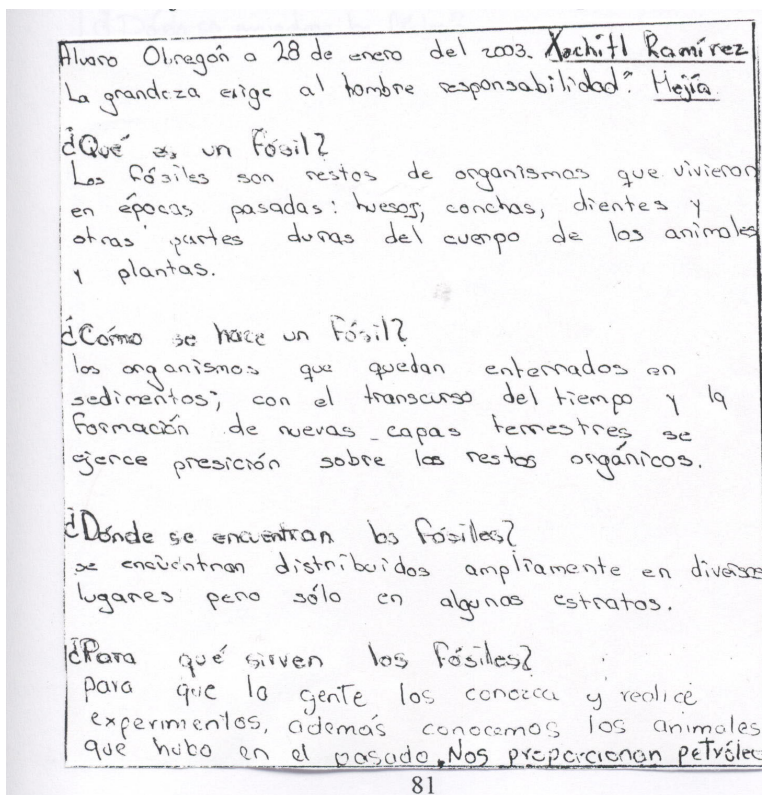 Alvaro Obregón a 28 de enero del 2003. Xochitl Ramírez
La grandeza exige al hombre responsabilidad". Mejía
¿Qué es un Fósil?
Los fósiles son restos de organismos que vivieron
en épocas pasadas: huesos, conchas, dientes y
otras partes duras del cuerpo de los animales
y plantas.
¿Cómo se hace un Fósil?
los organismos que quedan enterrados en
sedimentos; con el transcurso del tiempo y la
Formación de nuevas capas terrestres se
ejerce presición sobre los restos orgánicos.
¿Dónde se encuentran los Fósiles?
se encuentran distribuidos ampliamente en diversos
lugares pero sólo en algunas estratos.
¿Para qué sirven los Fósiles?
para que la gente los conozca y realice
experimentos, además conocemos los animales
que hubo en el pasado. Nos proporcionan petróleo
81